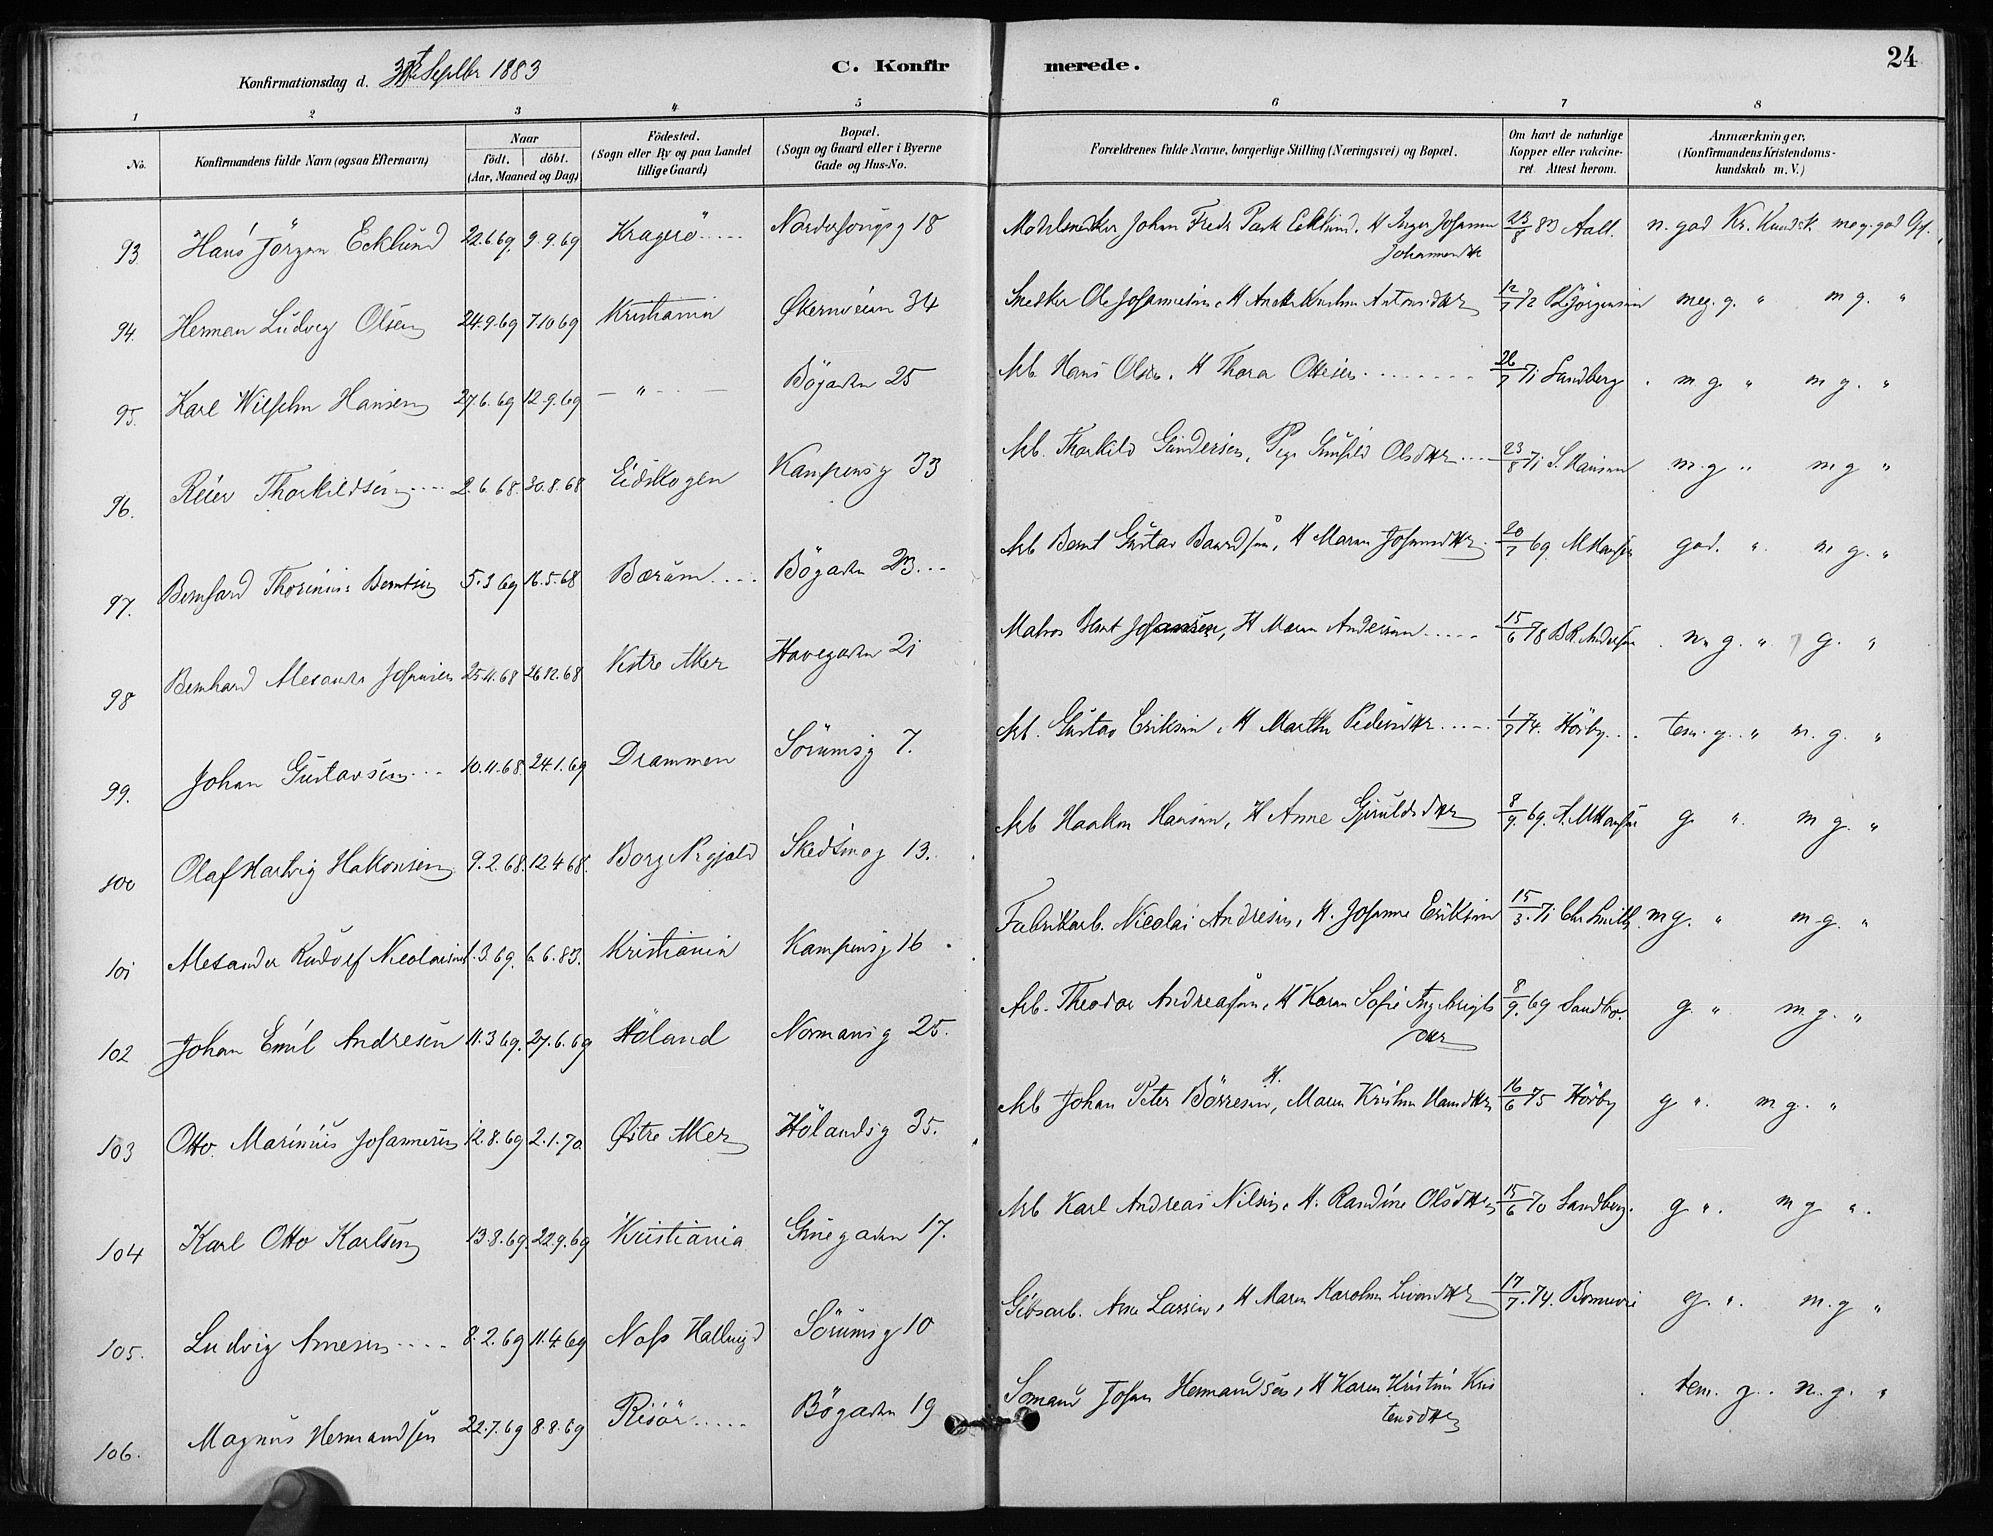 Konfirmationsdag d. Septbr 1883
C. Konfirmerede.
24
1 2 3 4 5 6 7 8
No.
Konfirmandens fulde Navn (ogsaa Efternavn)
Naar
födt. döbt.
(Aar, Maaned og Dag)
Födested.
(Sogn eller By og paa Landet
tillige Gaard)
Bopæl.
(Sogn og Gaard eller i Byerne
Gade og Hus-No.
Forældrenes fulde Navne, borgerlige Stilling (Næringsvei) og Bopæl.
Om havt de naturlige
Kopper eller vakcine-
ret. Attest herom.
Anmærkninger.
(Konfirmandens Kristendoms-
kundskab m. V.)
93. Hans Jörgen Ecklund 22.6.69. 9.9.69 Kragerö Nordbygs 18 Johan Fredr Ecklund, H Inger 23/8 83 Aall. n. god Kr. Kundsk meg. god
Johannesdtr
94. Herman Ludvig Olsen 24.9.69 7.10.69 Kristiania Økernveien 34 Snedker Ole Johannesen, H Antonsdtr 12/7 72 Jörgensen meg. g. " m g. "
95. Karl Wilhelm Hansen 27.6.69 12.9.69 — " — Bögaden 25 Arb Hans Olsen, H Thora Ottesen 26/7 71 Sandberg m g " m g. "
96. Reier Thorkildsen 2.6.68. 30.8.68 Eidskogen Kampensg 33 Arb. Thorkild Gundersen, Pige Gunhild Olsdtr 23/8 71 S. Hansen m. g " m g "
97. Bernhard Thorinius Berntsen 5.3 69 16.5.68 Bærum Bögaden 23 Arb Bernt Gustav Baardsen, H Maren Johansdtr 20/7 69 M Hansen god. " m g. "
98 Bernhard Alexander Johansen 25.11.68 26 12.68 Vestre Aker Havegaden 21 Matros Bernt Johansen, H Maren Andersen 15/6 78 Andersen n. g. " g. "
99. Johan Gustavsen 10.11.68. 24.1.69 Drammen Sörumsg 7. Arb. Gustav Eriksen, H Marthe Pedersdtr 1/7 74. Hörby tem. g. " m. g. "
100 Olaf Hartvig Hakonsen 9.2.68. 12 4 68. Borg Skedsmog 13. Arb Haakon Hansen, H Anne Gjeruldsdtr 8/9. 69. A. M Hansen g. " m g. "
101 Alexander Rudolf Nicolaisen 1.3.69. 6.6.83. Kristiania Kampensg 16 Fabrikarb. Nicolai Andresen, H. Johanne Eriksen 15/3. 71 Chr Smith m g. " m g. "
102 Johan Emil Andresen 11.3 69. 27.6.69 Höland Normansg 25. Arb. Theodor Andreassen, H Karen Sofie 8/9. 69 g. " m g. "
dtr
103 Otto Marinius Johannesen 12.8.69 2.1.70 Østre Aker Hölandsg 35. Arb Johan Peter Börresen, H. Maren Kristine Hansdtr 16/6 75 Hörby g " m g. "
104 Karl Otto Karlsen 13.8.69. 22.9.69 Kristiania Grüegaden 17. Arb Karl Andreas Nilsen, H. Randine Olsdtr 15/6 70 Sandberg. g ". m g ".
105. Ludvig Arnesen 8.2.69 11.4.69 Næs Sörumsg 10 Gibsarb. Arne Larsen, H Maren Karoline 17/7. 74. g. " m. g "
106. Magnus Hermandsen 22.7.69 8.8.69 Risör Bögaden 19 Sömand Johan Hermandsen, H Karen Kristine Kris tem. g. n. g. "
tensdtr